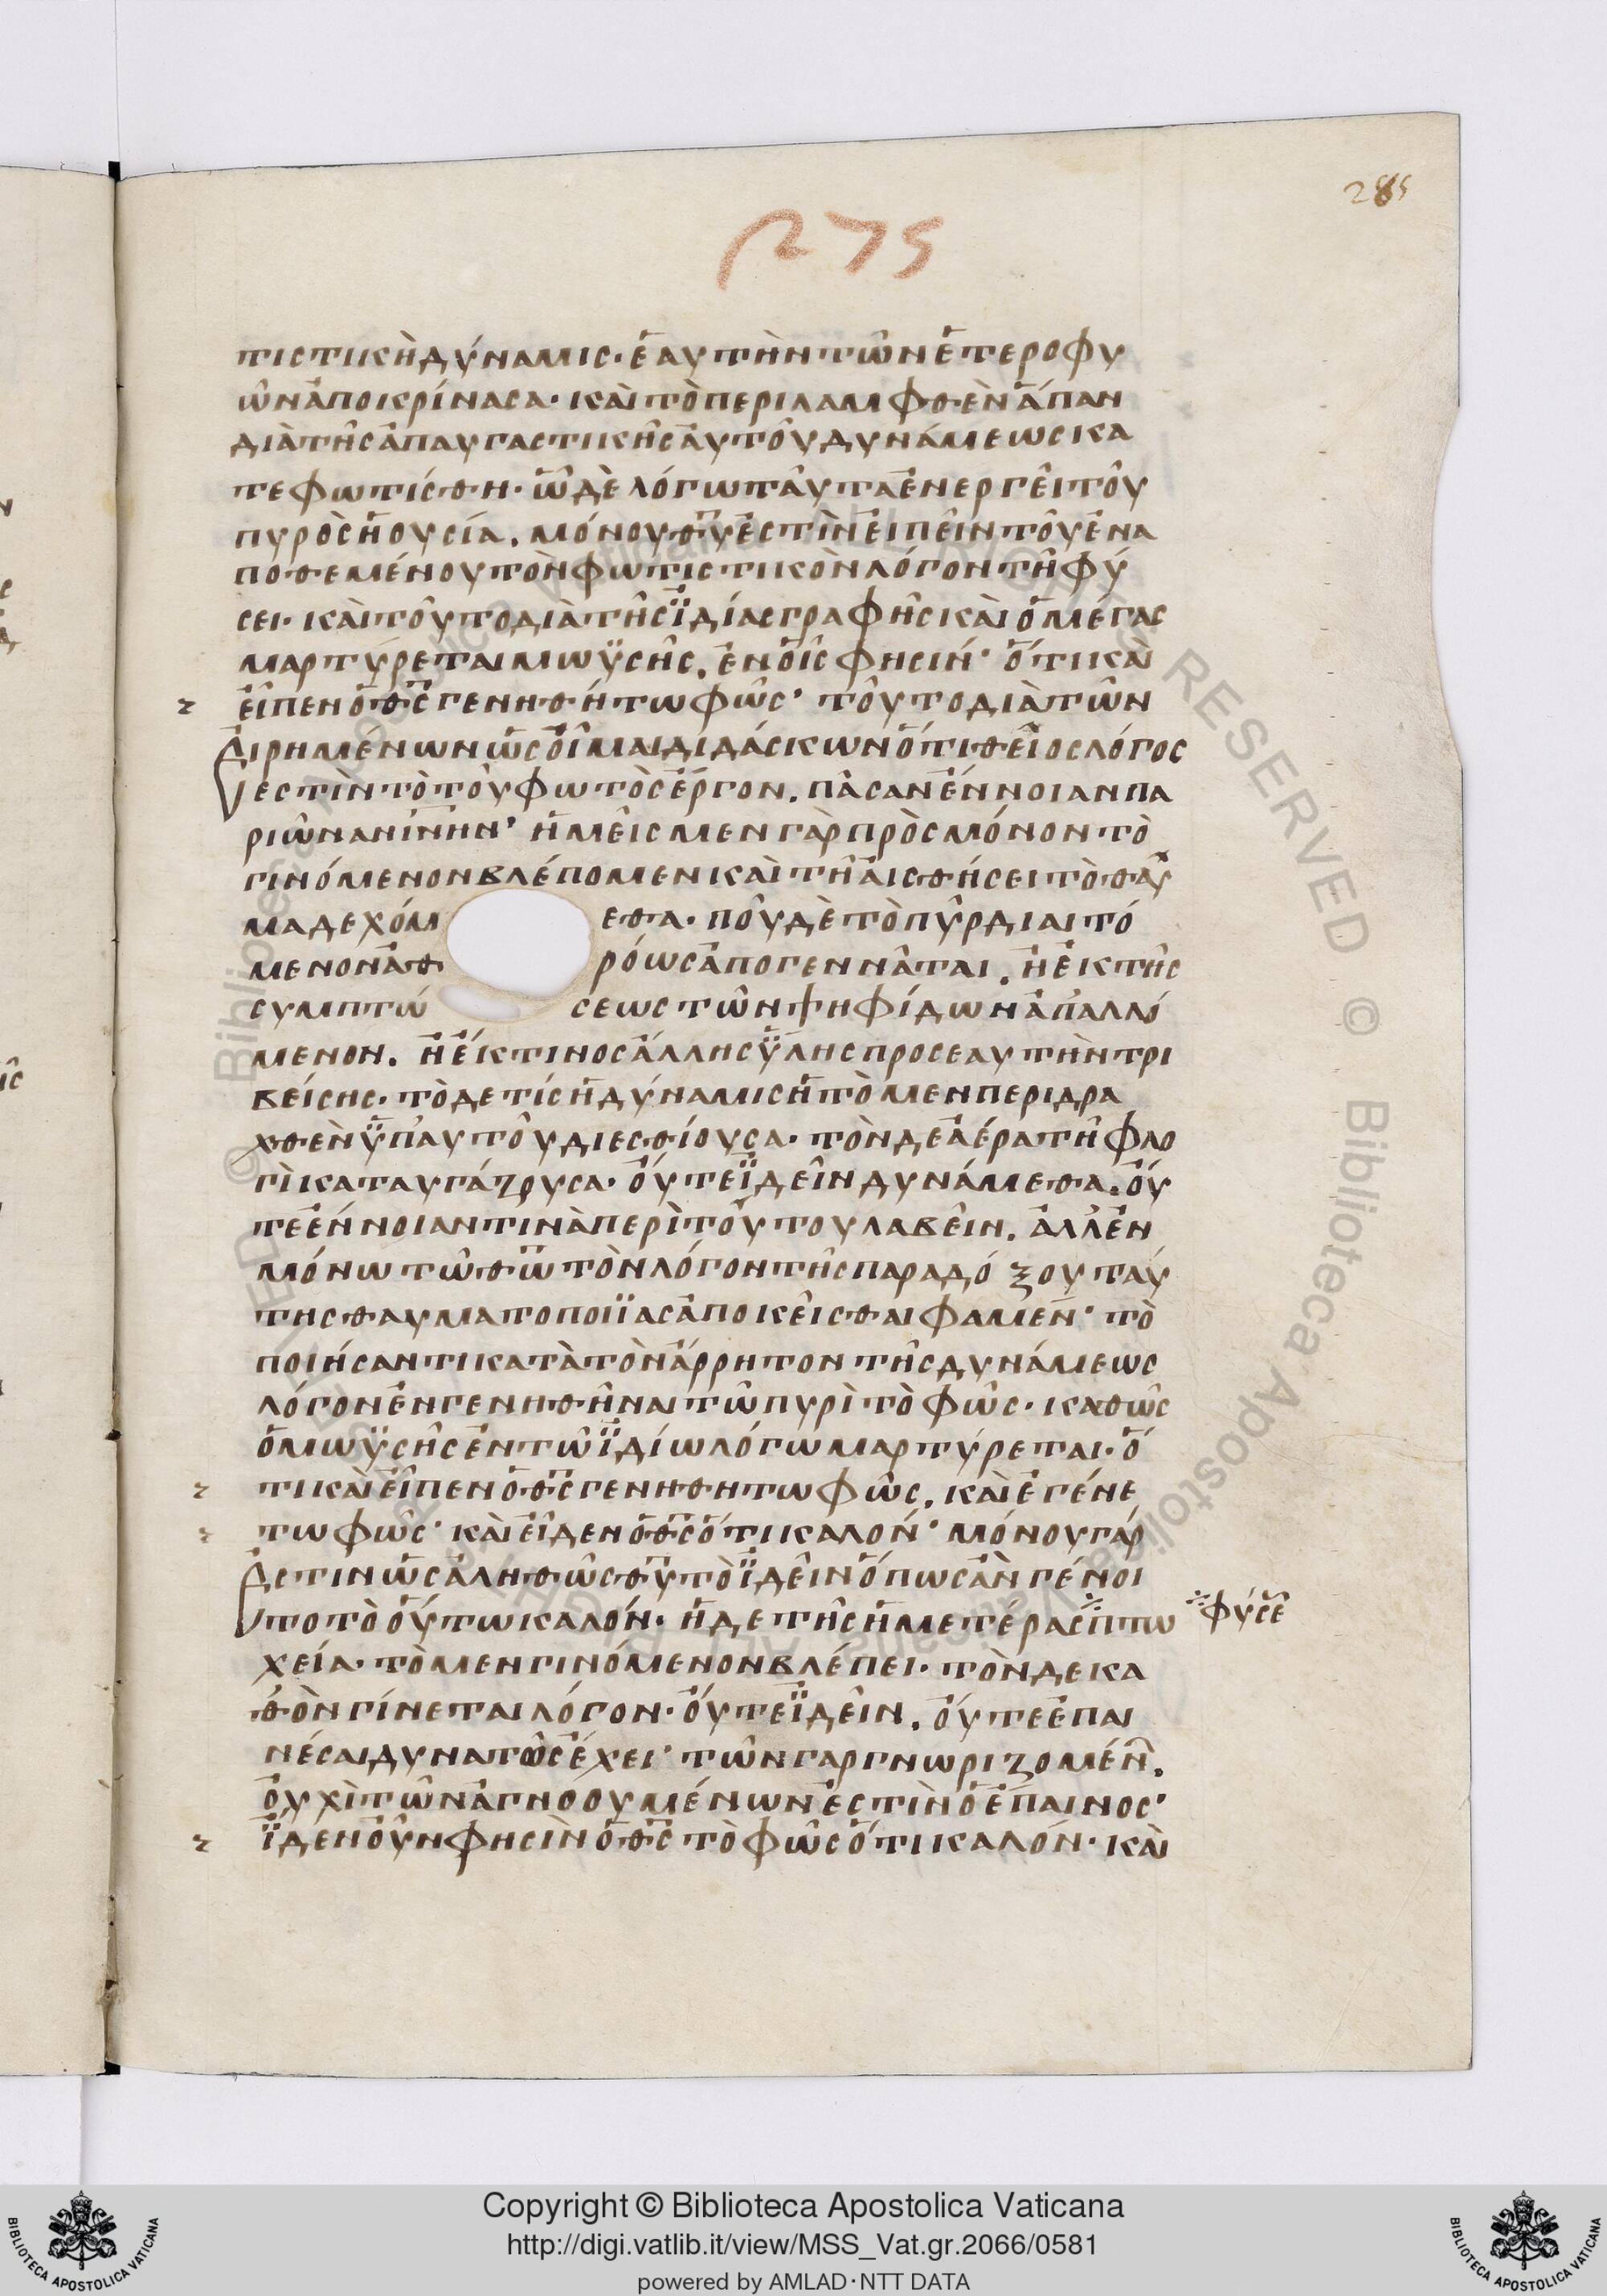 285
275
τιστικὴ δύναμις· ἑαυτὴν τῶν ἑτεροφυ
ῶν ἀποκρίνασα· καὶ τὸ περιλαμφθὲν ἅπαν
διὰ τῆς ἀπαυγαστικῆς αὐτοῦ δυνάμεως κα
τεφωτίσθη· ᾧ δὲ λόγω ταῦτα ἐνεργεῖ τοῦ
πυρὸς ἡ οὐσία. μόνου θυ ἐστὶν εἰπεῖν τοῦ ἐνα
ποθεμένου τὸν φωτιστικὸν λόγον τῆ φύ
σει· καὶ τοῦτο διὰ τῆς ἰδίας γραφῆς καὶ ὁ μέγας
μαρτύρεται μωϋσῆς. ἐν οἷς φησιν· ὅτι καὶ
εἶπεν ὁ θς γενηθήτω φῶς· τοῦτο διὰ τῶν
εἰρημένων ὡς οἶμαι διδάσκων ὅτι θεῖος λόγος
ἐστὶν τὸ τοῦ φωτὸς ἔργον. πᾶσαν ἔννοιαν πα
ριὼν ανίνην· ἡμεῖς μεν γὰρ πρὸς μόνον τὸ
γινόμενον βλέπομεν καὶ τῆ αἰσθήσει τὸ θαῦ
μα δεχόμεθα· ποῦ δὲ τὸ πῦρ διαιτό
μενον ἀθρόως ἀπογεννᾶται. ἢ ἐκ τῆς
συμπτώσεως τῶν ψηφίδων ἀπαλλό
μενον. ἢ ἔκ τινος ἄλλης ὕλης προς εαυτὴν τρι
βείσης· τὸ δε τίς ἡ δύναμις ἡ τὸ μεν περιδρα
χθὲν ὑπ' αυτοῦ διεσθίουσα· τὸν δε ἀέρα τῆ φλο
γὶ καταυγάζουσα· οὔτε ἰδεῖν δυνάμεθα. οὔ
τε ἔννοιαν τινὰ περὶ τούτου λαβεῖν. ἀλλ' ἐν
μόνω τῶ θω τὸν λόγον τῆς παραδόξου ταύ
της θαυματοποιΐας ἀποκεῖσθαι φαμεν· τὸ
ποιήσαντι κατὰ τὸν ἄρρητον τῆς δυνάμεως
λόγον ἐνγενηθῆναι τῶ πυρὶ τὸ φῶς· καθὼς
ὁ μωϋσῆς ἐν τῶ ἰδίω λόγω μαρτύρεται· ὅ
τι καὶ εἶπεν ὁ θς γενηθητω φῶς. καὶ ἐγένε
τω φῶς· καὶ εἶδεν ὁ θς ὅτι καλόν· μόνου γάρ
ἐστιν ὡς ἀληθῶς θυ τὸ ἰδεῖν ὅπως ἂν γένοι
το τὸ οὕτω καλόν· ἡ δε τῆς ἡμετέρας πτω
φύσε
χεία· τὸ μεν γινόμενον βλέπει· τὸν δε κα
θὸν γίνεται λόγον· οὔτε ἰδεῖν. οὔτε ἐπαι
νέσαι δυνατῶς ἔχει· τῶν γαρ γνωριζομέν.
οὐχὶ τῶν ἀγνοουμένων ἐστὶν ὁ ἔπαινος·
ἴδεν οὖν φησὶν ὁ θς τὸ φῶς ὅτι καλόν· καὶ
Copyright © Biblioteca Apostolica Vaticana
http://digi.vatlib.it/view/MSS_Vat.gr.2066/0581
powered by AMLAD·NTT DATA
BIBLIOTECA APOSTOLICA VATICANA
BIBLIOTECA APOSTOLICA VATICANA